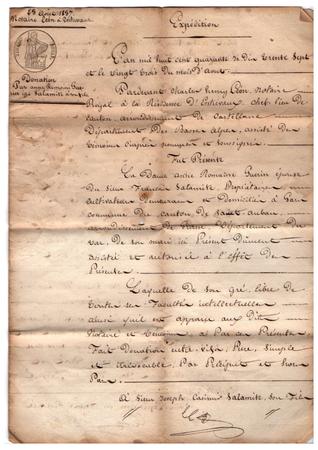 23 Aout 1837
Notaire Léon à Entrevaux
Expédition
L'an mil huit cent trente Sept
et le vingt trois du mois d'Aout
Donation
Par anne Romaine Gue-
rin ep. Salamite à son fils
Pardevant Charles henry Léon, Notaire
Royal à la Résidence d'Entrevaux, chef lieu de
canton, arrondissement de Castellane
Département des Basses alpes, assisté des
témoins ci après nommés et soussignés.
Fut Présente
La Dame anne Romaine Guerin épouse
du Sieur François Salamite, Propriétaire
cultivateur demeurant et Domiciliée à
commune du canton, de Saint auban,
arrondissement de Grasse Département du
var, De son mari ici Présent Dûment
assistée et autorisée à l'effet des
Présentes.
Laquelle de Son gré, libre de
toutes ses Facultés intellectuelles
ainsi qu'il est apparu aux Dits
Notaire et témoins, a Par ces Présentes
Fait Donation entre vifs, Pure, Simple
et irrévocable, Par Préciput et hors
Part.
à Sieur Joseph Casimir Salamite, son Fils